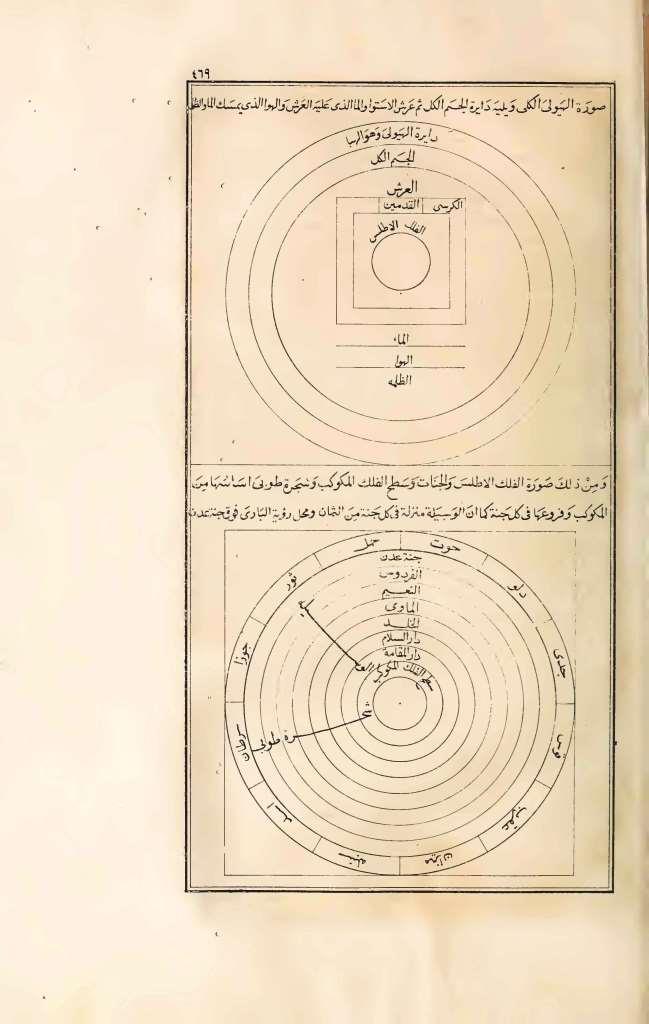 ٤٦٩
صورة الهيولى الكلى ويليه دايرة الجسم الكل ثم عرش الاستوا والما الذى عليه العرش والهوا الذى يمسك الما والظلمة
دايرة الهيولى وهو الهبا
الجسم الكل
العرش
القدمين
الكرسى
الفلك الاطلس
الماء
الهوا
الظلمه
ومن ذلك صورة الفلك الاطلس والجنات وسطح الفلك المكوكب وشجرة طوبى اساسها من
المكوكب وفروعها فى كل جنة كما ان الوسيلة منزلة فى كل جنة من الثمان ومحل رؤية البارى فوق جنة عدن
حمل
حوت
دلو
جدى
قوس
عقرب
ميزان
سنبله
اسد
سرطان
جوزا
ثور
جنة عدن
الفردوس
النعيم
الماوى
الخلد
دار السلام
دار المقامة
سطح الفلك المكوكب
شجرة طوبى